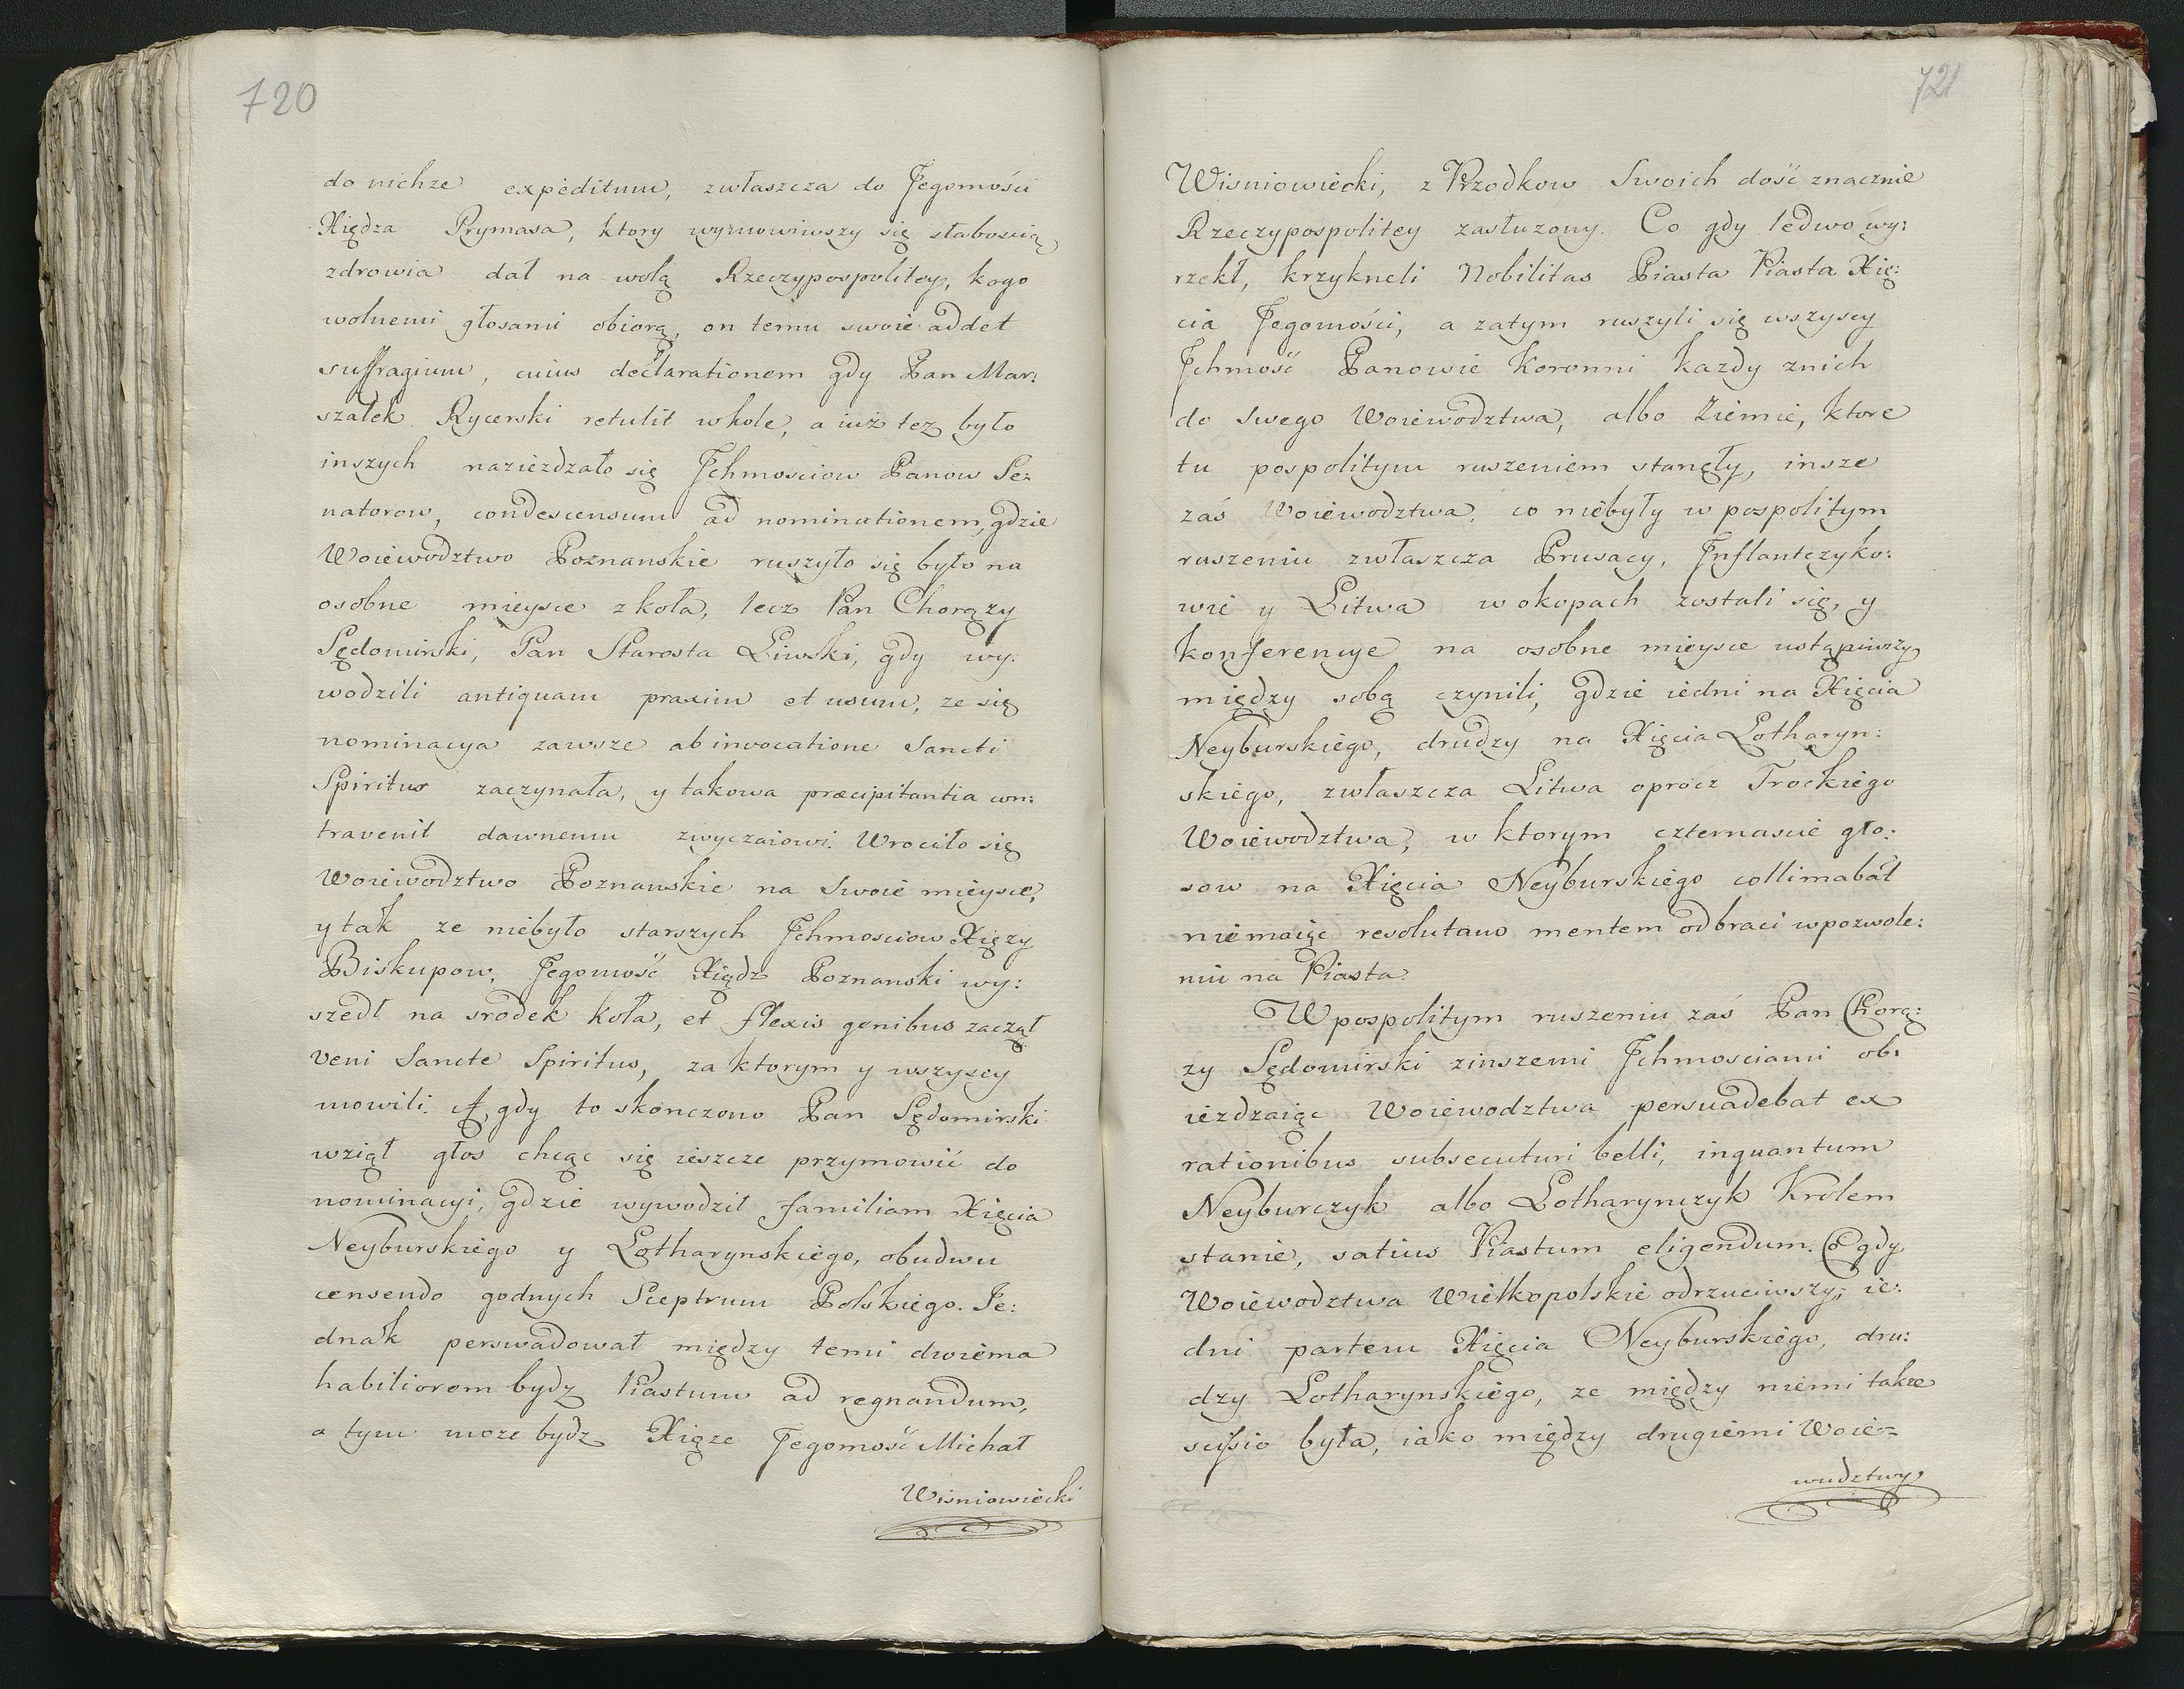 720
do nichze expeditum, zwłaszcza do Jegomości
Xiędza Prymasa, ktory wymowiwszy się słaboscią
zdrowia dał na wolą Rzeczypospolitey, kogo
wolnemi głosami obiorą, on temu swoie addet
suffragium, cuius declarationem gdy Pan Mar:
szałek Rycerski retulit wkole, a iuż tez było
inszych naziezdzało się Jchmosciow Panow Se:
natorow, condescensum ad nominationem, gdzie
Woiewodztwo Poznanskie ruszyło się było na
osobne mieysce z koła, lecz Pan Chorązy
Sędomirski, Pan Starosta Liwski, gdy wy:
wodzili antiquam praxim et usum, ze się
nominacya zawsze ab invocatione Sancti
Spiritus zaczynała, y takowa præcipitantia con:
travenit dawnemu zwyczaiowi. Wrociło się
Woiewodztwo Poznanskie na Swoie mieysce,
y tak ze niebyło starszych Jchmosciow Xięzy
Biskupow, Jegomość Xiądz Poznanski wy:
szedł na srodek koła, et flexis genibus zaczął
veni Sancte Spiritus, za ktorym y wszyscy
mowili. A gdy to skonczono Pan Sędomirski
wziął głos chcąc się ieszcze przymowić do
nominacyi, gdzie wywodził familiam Xięcia
Neyburskiego y Lotharynskiego, obudwu
censendo godnych Sceptrum Polskiego. Je:
dnak perswadował między temi dwiema
habiliorem bydz Piastum ad regnandum,
a tym moze bydz Xiąze Jegomość Michał
Wisniowiecki
721
Wisniowiecki, z Przodkow Swoich dość znacznie
Rzeczypospolitey zasłuzony. Co gdy ledwo wy:
rzekł, krzykneli Nobilitas Piasta Piasta Xię:
cia Jegomości, a zatym ruszyli się wszyscy
Jchmość Panowie Koronni kazdy znich
do Swego Woiewodztwa, albo Ziemie, ktore
tu pospolitym ruszeniem stanęły, insze
zaś Woiewodztwa, co niebyły w pospolitym
ruszeniu zwłaszcza Prusacy, Jnflantczyko:
wie y Litwa w okopach zostali się, y
konferencye na osobne mieysce ustąpiwszy
między sobą czynili, gdzie iedni na Xięcia
Neyburskiego, drudzy na Xięcia Lotharyn:
skiego, zwłaszcza Litwa oprocz Trockiego
Woiewodztwa, w ktorym czternascie gło:
sow na Xięcia Neyburskiego collimabat
niemaiąc resolutam mentem od braci wpozwole:
niu na Piasta.
W pospolitym ruszeniu zaś Pan Chorą:
zy Sędomirski zinszemi Jchmosciami ob:
iezdzaiąc Woiewodztwa persuadebat ex
rationibus subsecuturi belli, inquantum
Neyburczyk albo Lotharynczyk Krolem
stanie, satius Piastum eligendum. Co gdy
Woiewodztwa Wielkopolskie odrzuciwszy, ie:
dni partem Xięcia Neyburskiego, dru:
dzy Lotharynskiego, ze między niemi takze
scissio była, iako między drugiemi Woie:
wudztwy